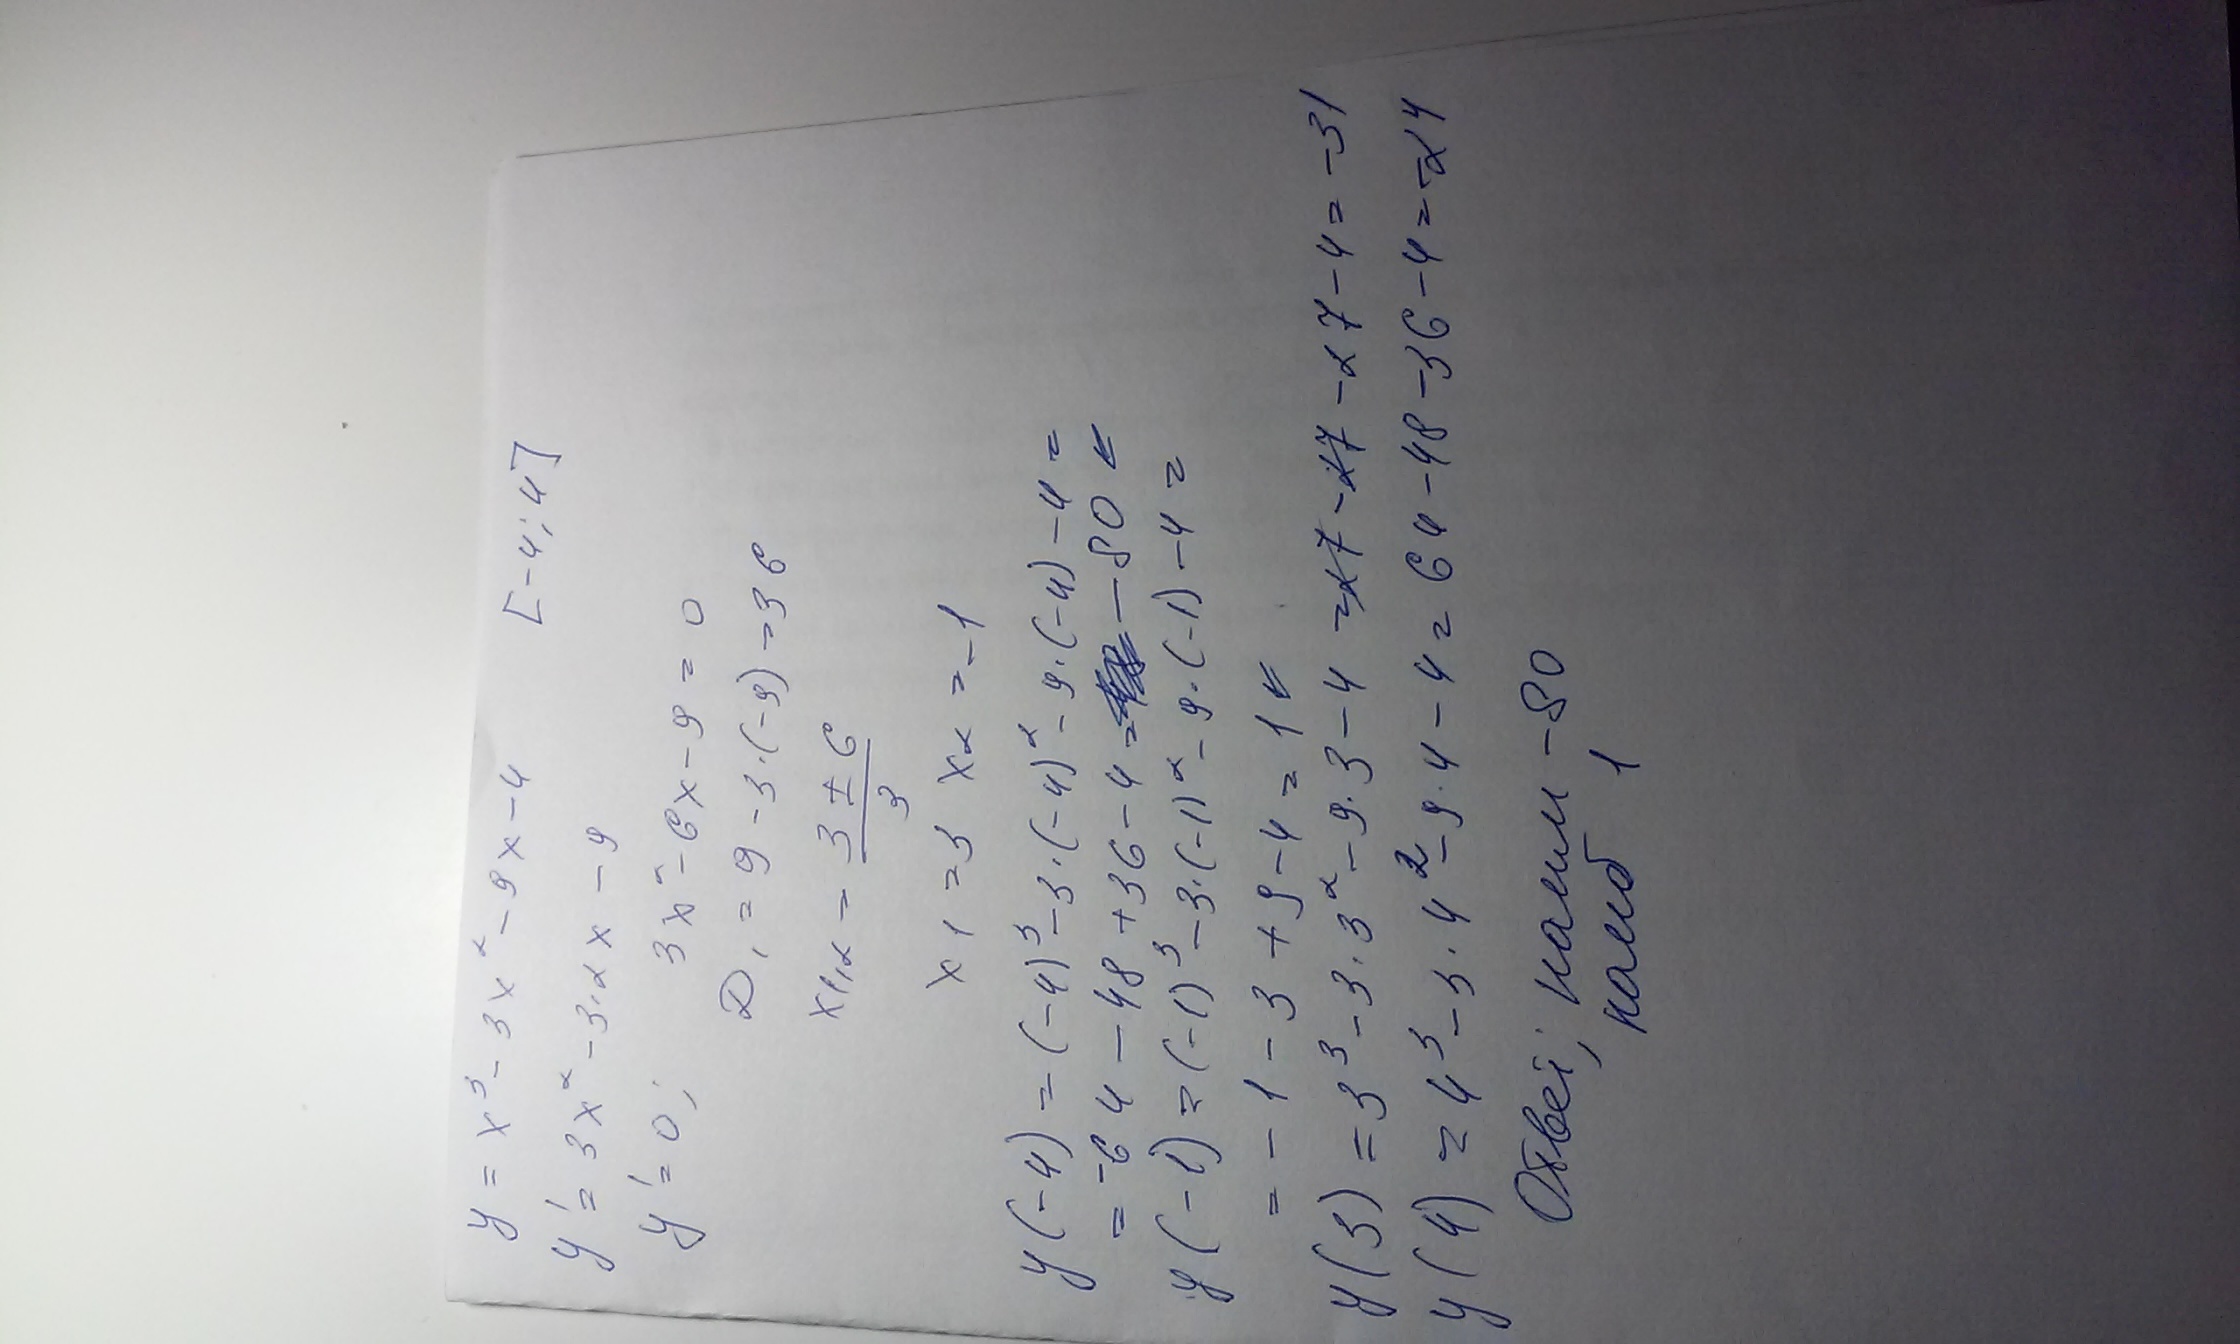 y = x³ - 3x² - 9x - 4 [-4; 4]
y' = 3x² - 3·2x - 9
y' = 0; 3x² - 6x - 9 = 0
D₁ = 9 - 3·(-9) = 36
x₁,₂ = (3 ± 6)/3
x₁ = 3 x₂ = -1
y(-4) = (-4)³ - 3·(-4)² - 9·(-4) - 4 =
= -64 - 48 + 36 - 4 = -80
y(-1) = (-1)³ - 3·(-1)² - 9·(-1) - 4 =
= -1 - 3 + 9 - 4 = 1
y(3) = 3³ - 3·3² - 9·3 - 4 = 27 - 27 - 27 - 4 = -31
y(4) = 4³ - 3·4² - 9·4 - 4 = 64 - 48 - 36 - 4 = -24
Ответ; наим -80
наиб 1